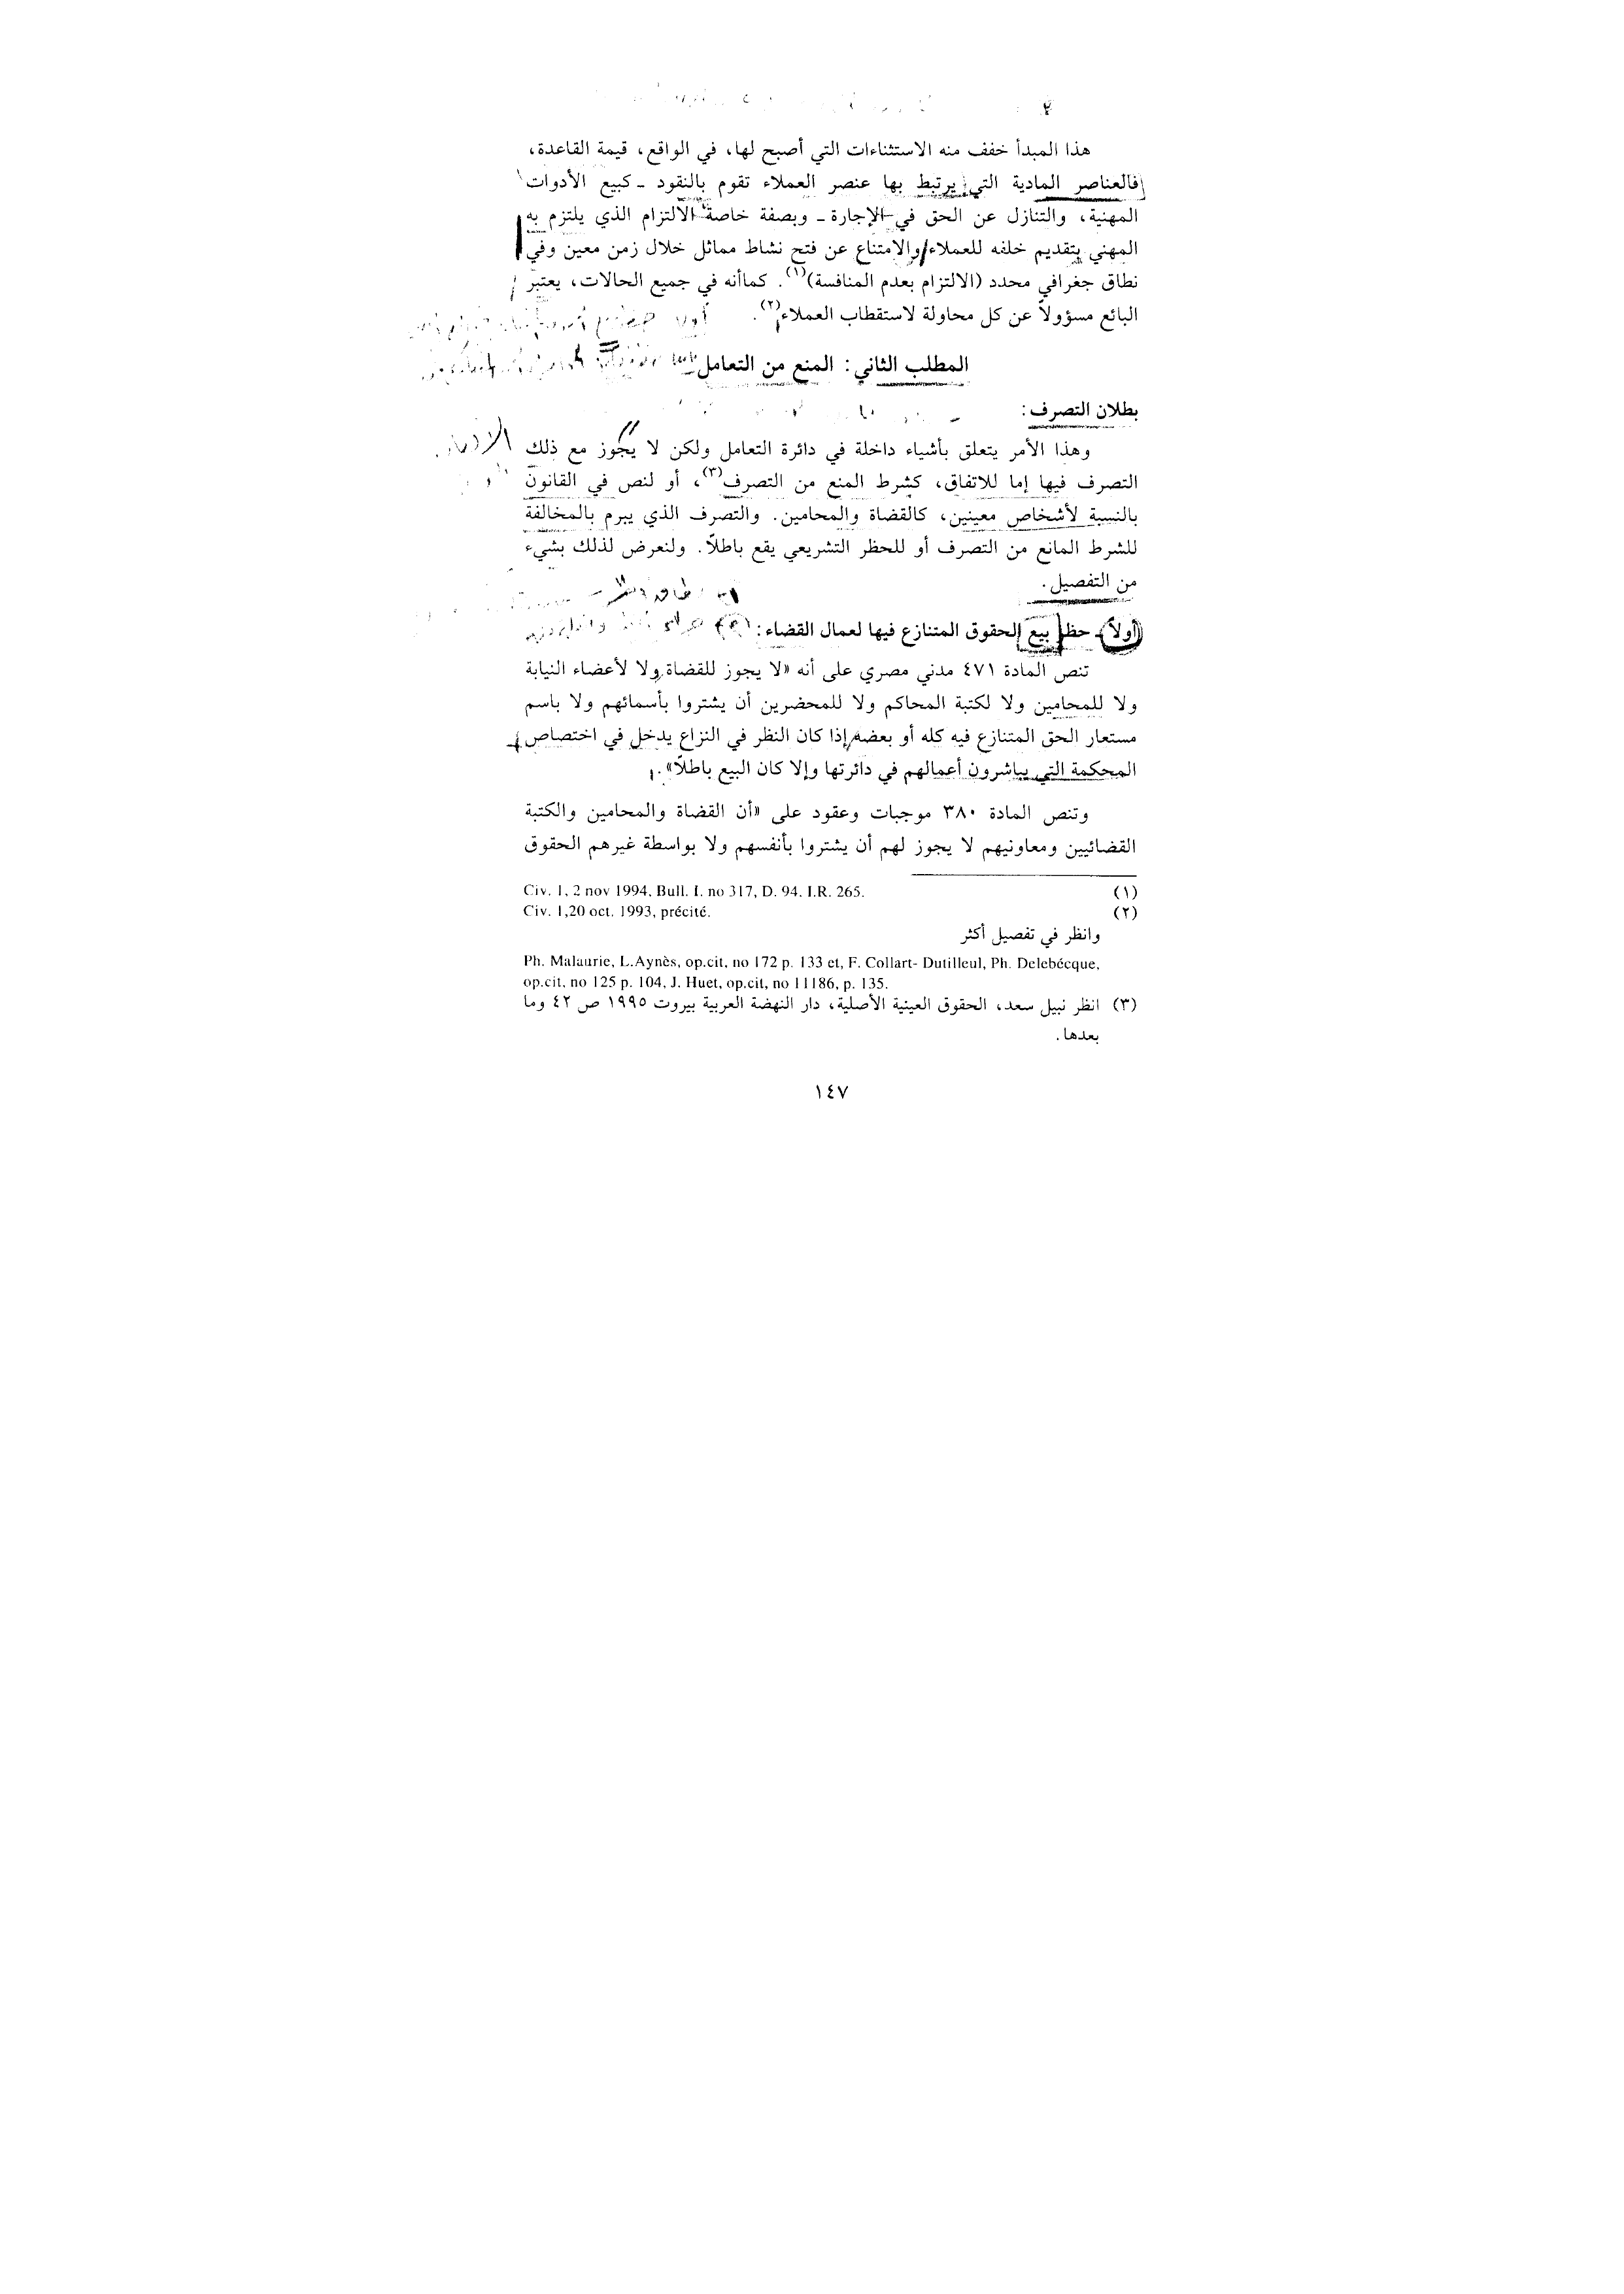 هذا المبدأ خفف منه الاستثناءات التي أصبح لها، في الواقع، قيمة القاعدة،
فالعناصر المادية التي يرتبط بها عنصر العملاء تقوم بالنقود ـ كبيع الأدوات
المهنية، والتنازل عن الحق في الإجارة ـ وبصفة خاصة الالتزام الذي يلتزم به
المهني بتقديم خلفه للعملاء والامتناع عن فتح نشاط مماثل خلال زمن معين وفي
نطاق جغرافي محدد (الالتزام بعدم المنافسة)(١). كماأنه في جميع الحالات، يعتبر
البائع مسؤولاً عن كل محاولة لاستقطاب العملاء(٢).
المطلب الثاني: المنع من التعامل
بطلان التصرف:
وهذا الأمر يتعلق بأشياء داخلة في دائرة التعامل ولكن لا يجوز مع ذلك
التصرف فيها إما للاتفاق، كشرط المنع من التصرف(٣)، أو لنص في القانون
بالنسبة لأشخاص معينين، كالقضاة والمحامين. والتصرف الذي يبرم بالمخالفة
للشرط المانع من التصرف أو للحظر التشريعي يقع باطلاً. ولنعرض لذلك بشيء
من التفصيل.
أولاً ـ حظر بيع الحقوق المتنازع فيها لعمال القضاء:
تنص المادة ٤٧١ مدني مصري على أنه «لا يجوز للقضاة ولا لأعضاء النيابة
ولا للمحامين ولا لكتبة المحاكم ولا للمحضرين أن يشتروا بأسمائهم ولا باسم
مستعار الحق المتنازع فيه كله أو بعضه إذا كان النظر في النزاع يدخل في اختصاص
المحكمة التي يباشرون أعمالهم في دائرتها وإلا كان البيع باطلاً».
وتنص المادة ٣٨٠ موجبات وعقود على «أن القضاة والمحامين والكتبة
القضائيين ومعاونيهم لا يجوز لهم أن يشتروا بأنفسهم ولا بواسطة غيرهم الحقوق
(١) Civ. 1, 2 nov 1994, Bull. I. no 317, D. 94. I.R. 265.
(٢) Civ. 1,20 oct. 1993, précité.
وانظر في تفصيل أكثر
Ph. Malaurie, L.Aynès, op.cit, no 172 p. 133 et, F. Collart- Dutilleul, Ph. Delebécque,
op.cit, no 125 p. 104, J. Huet, op.cit, no 11186, p. 135.
(٣) انظر نبيل سعد، الحقوق العينية الأصلية، دار النهضة العربية بيروت ١٩٩٥ ص ٤٢ وما
بعدها.
١٤٧